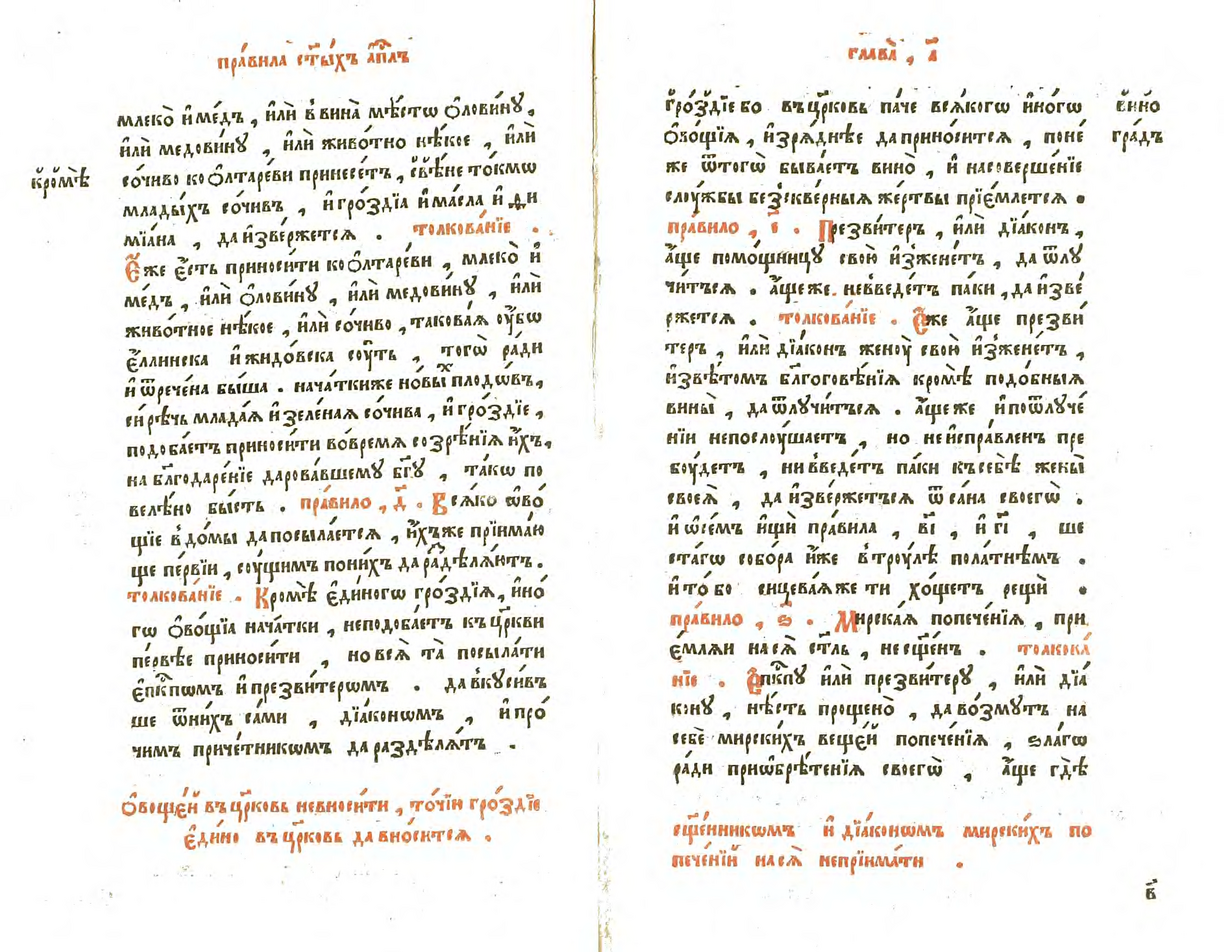 пра́вила ст҃ы́хъ а҆пⷭ҇лъ
млеко̀ и҆ ме́дъ , и҆лѝ в̾ вина̀ мѣ́стѡ ѻ҆лови́нꙋ ,
и҆лѝ медови́нꙋ , и҆лѝ живо́тно нѣ́кое , и҆лѝ
кро́мѣ
со́чиво ко ѻ҆лтаре́ви принесе́тъ , свѣ́не то́кмѡ
млады́хъ со́чивъ , и҆ гро́здїа и҆ ма́сла и҆ ѳи
мїа́на , да и҆зве́ржетсѧ . толкова́нїе .
Е҆́же є҆́сть приноси́ти ко ѻ҆лтаре́ви , млеко̀ и҆
ме́дъ , и҆лѝ ѻ҆лови́нꙋ , и҆лѝ медови́нꙋ , и҆лѝ
живо́тное нѣ́кое , и҆лѝ со́чиво , такова́ѧ ᲂу҆́бѡ
є҆́ллинска и҆ жидо́вска сᲂу́ть , тогѡ̀ ра́ди
и҆ ѿрече́на бы́ша . нача́тки же но́выⷯ плодѡ́въ ,
си́рѣчь млада́ѧ и҆ зеле́наѧ со́чива , и҆ гро́здїе ,
подоба́етъ приноси́ти во вре́мѧ созрѣ́нїѧ и҆́хъ ,
на бл҃годаре́нїе дарова́вшемꙋ бг҃ꙋ , та́кѡ по
веле́но бы́сть . пра́вило , д҃ . Всѧ́ко ѡ҆во́
щїе в̾ до́мы да посыла́етсѧ , и҆́хъ же прїима́ю
ще пе́рвїи , сᲂу́щимъ по ни́хъ да раⷥдѣлѧ́ютъ .
толкова́нїе . Кро́мѣ є҆ди́ногѡ гро́здїѧ , и҆но́
гѡ ѻ҆во́щїа нача́тки , не подоба́етъ къ цр҃кви
пе́рвѣе приноси́ти , но всѧ̀ та̀ посыла́ти
є҆пⷭ҇кпѡмъ и҆ презви́терѡмъ . да вкꙋси́въ
ше ѿ ни́хъ са́ми , дїа́конѡмъ , и҆ про́
чимъ приче́тникѡмъ да раздѣлѧ́тъ .
Ѻ҆воще́й въ цр҃ковь не вноси́ти , то́чїю гро́здїе
є҆ди́но въ цр҃ковь да вно́ситсѧ .
глава̀ , а҃
гро́здїе бо въ цр҃ковь па́че всѧ́когѡ и҆но́гѡ
вино
ѻ҆во́щїѧ , и҆зрѧ́днѣе да прино́ситсѧ , поне́
гра́дъ
же ѿ тогѡ̀ быва́етъ вино̀ , и҆ на соверше́нїе
слᲂу́жбы без̾скве́рныѧ же́ртвы прїе́млетсѧ .
пра́вило , є҃ . Презви́теръ , и҆лѝ дїа́конъ ,
а҆́ще помо́щницꙋ свою̀ и҆зжене́тъ , да ѿлꙋ
чи́тъсѧ . а҆́ще же не в̾веде́тъ па́ки , да и҆зве́
ржетсѧ . толкова́нїе . Е҆́же а҆́ще презви́
теръ , и҆лѝ дїа́конъ женᲂу̀ свою̀ и҆зжене́тъ ,
и҆звѣ́томъ бл҃гоговѣ́нїѧ кро́мѣ подо́бныѧ
вины̀ , да ѿлꙋчи́тъсѧ . а҆́ще же и҆ по ѿлꙋче́
нїи не послᲂу́шаетъ , но не и҆спра́вленъ пре
бᲂу́детъ , ни в̾веде́тъ па́ки къ себѣ̀ жены̀
своеѧ̀ , да и҆зве́ржетъсѧ ѿ са́на своегѡ̀ .
и҆ ѡ҆ се́мъ и҆щѝ пра́вила , в҃і , и҆ г҃і , ше
ста́гѡ собо́ра и҆́же в̾ трᲂу́лѣ пола́тнѣмъ .
и҆ то́ бо сицева́ѧ же ти хо́щетъ рещѝ .
пра́вило , ѕ҃ . Мирска́ѧ попече́нїѧ , при
е́млѧи на сѧ̀ ст҃ль , не сщ҃е́нъ . толкова́
нїе . Е҆пⷭ҇кпꙋ и҆лѝ презви́терꙋ , и҆лѝ дїа́
конꙋ , нѣ́сть проще́но , да во́змꙋтъ на
себѐ мирски́хъ веще́й попече́нїѧ , ѕла́гѡ
ра́ди приѡбрѣ́тенїѧ своегѡ̀ , а҆́ще гдѣ̀
сщ҃е́нникѡмъ и҆ дїа́конѡмъ мирски́хъ по
пече́нїй на сѧ̀ не прїима́ти .
в҃